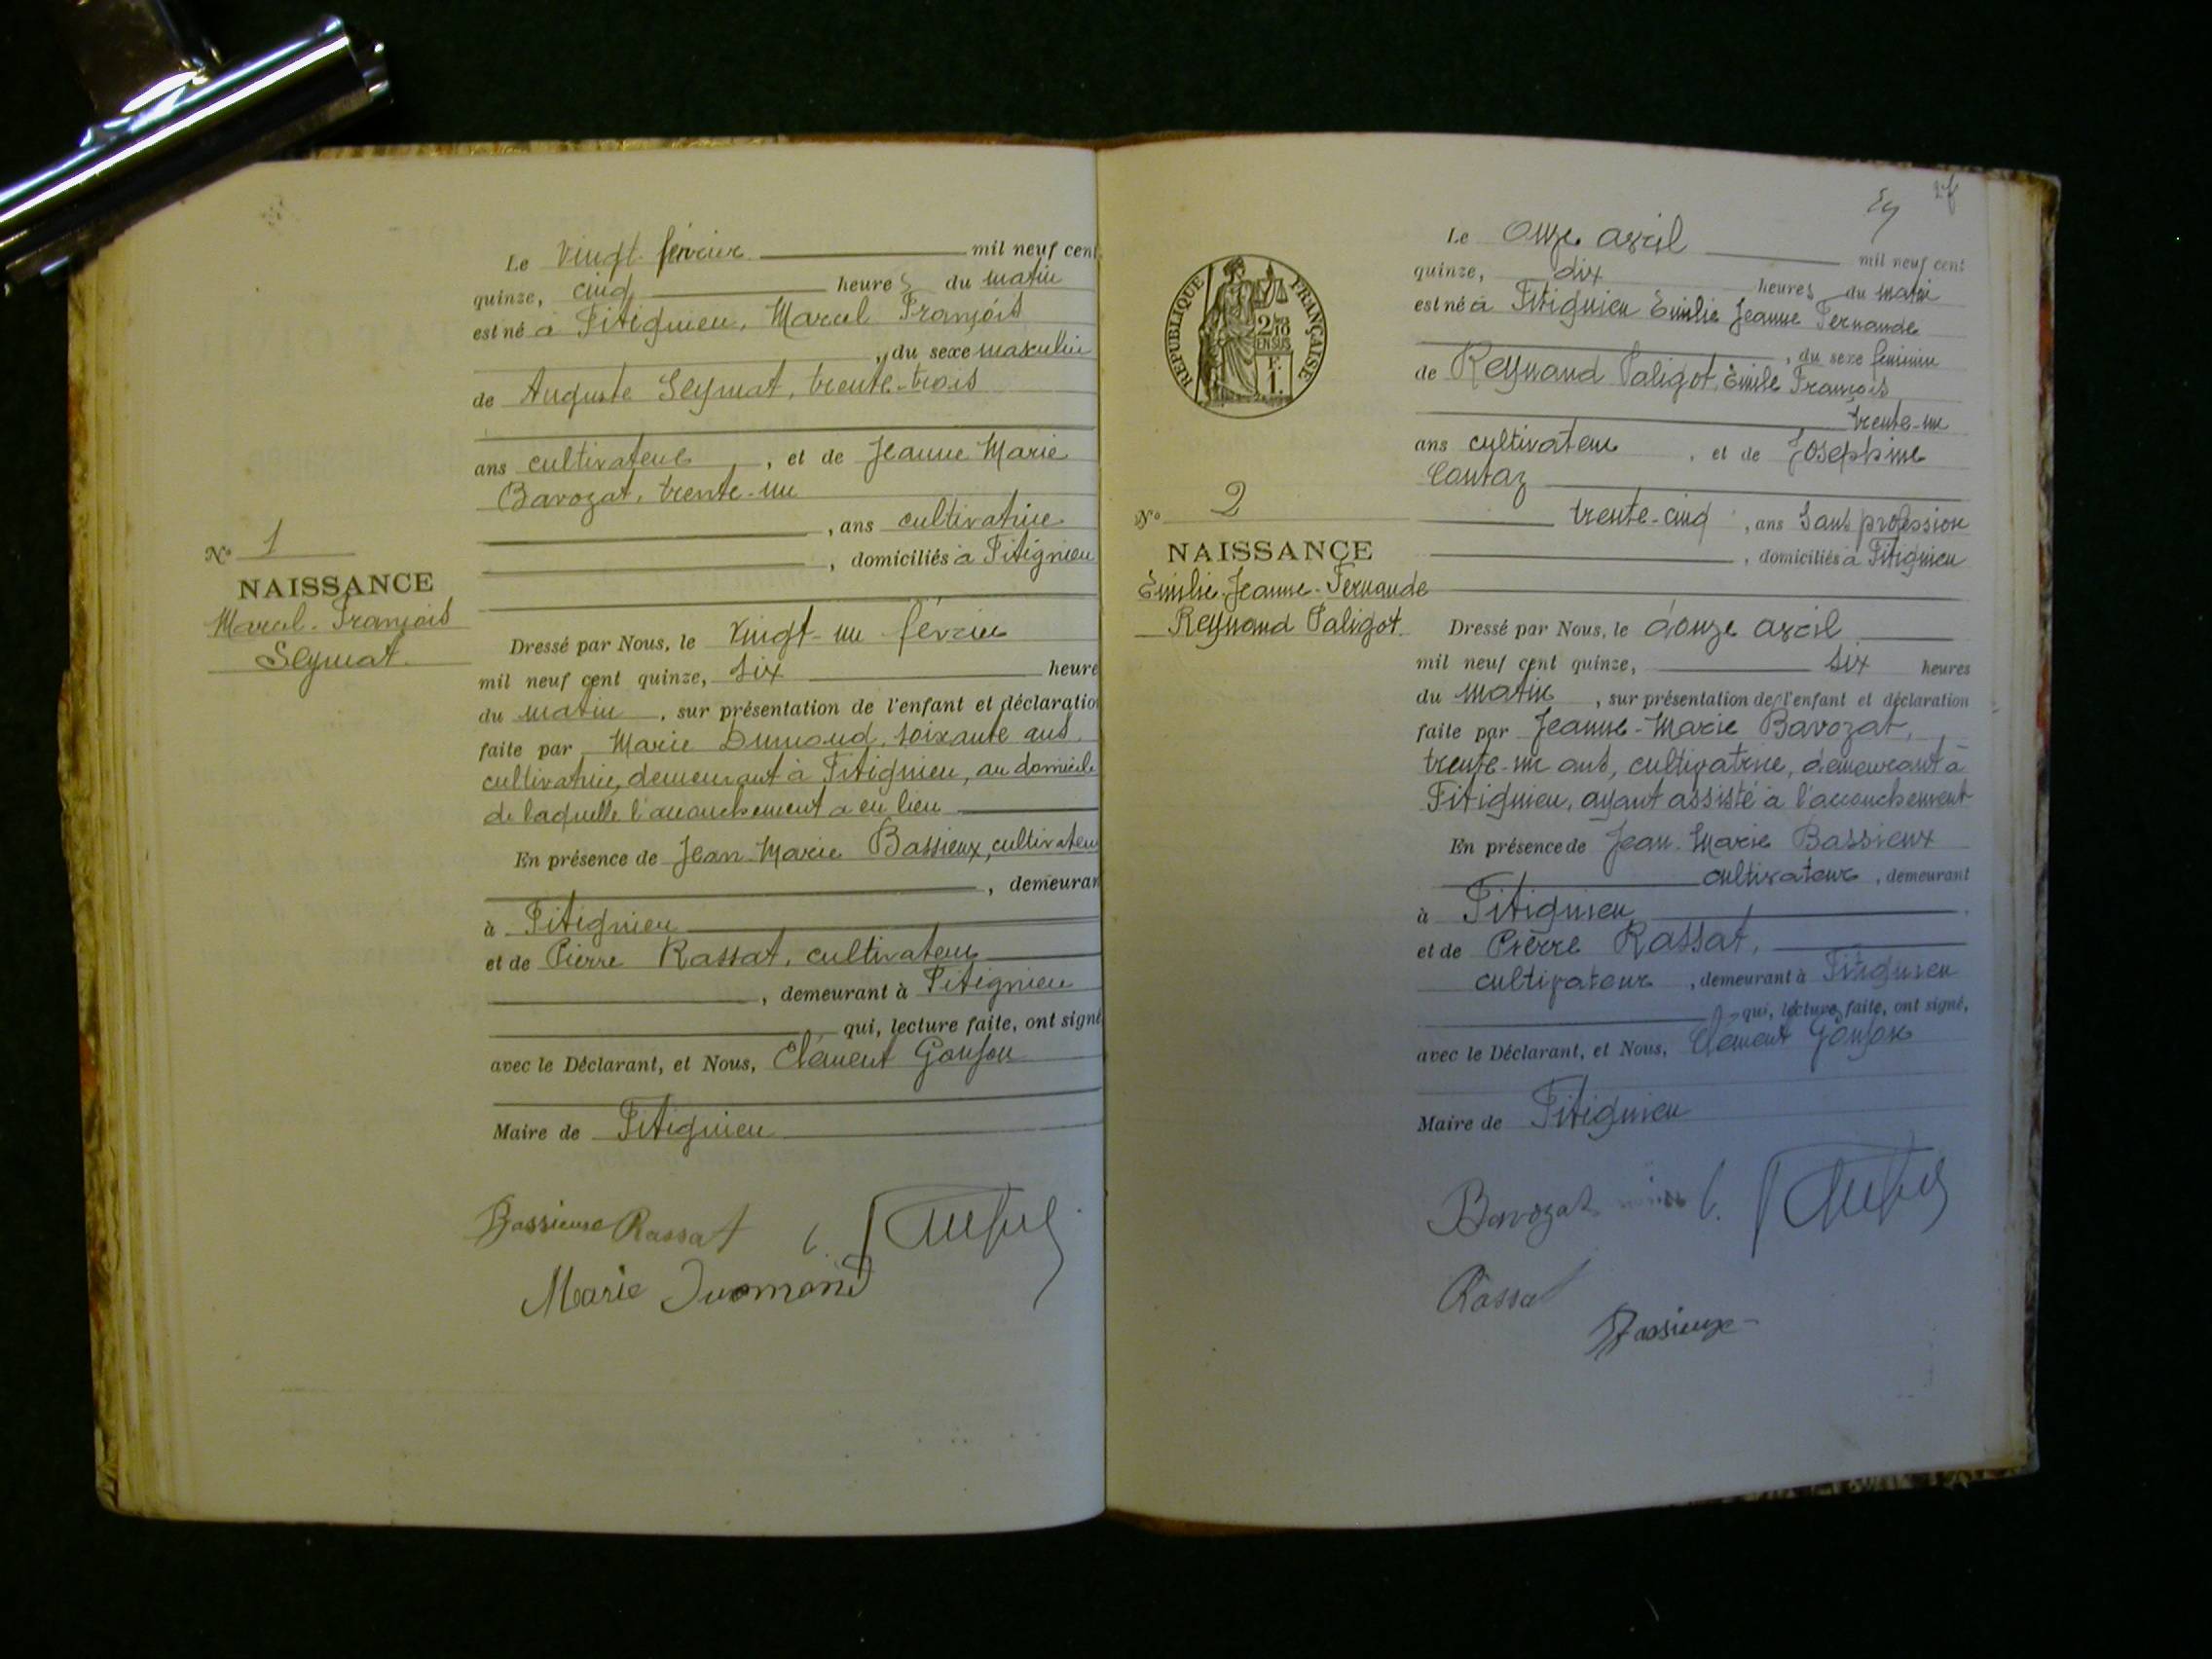 Le Vingt février mil neuf cent
quinze, cinq heures du matin
est né à Fitignieu, Marcel François
, du sexe masculin
de Auguste Seymat, trente-trois
ans cultivateur, et de Jeanne Marie
Bavozat, trente-un
, ans cultivatrice
, domiciliés à Fitignieu
N° 1
NAISSANCE
Marcel-François
Seymat.
Dressé par Nous, le Vingt-un février
mil neuf cent quinze, six heure
du matin, sur présentation de l'enfant et déclaration
faite par Marie Dumond, soixante ans,
cultivatrice, demeurant à Fitignieu, au domicile
de laquelle l'accouchement a eu lieu
En présence de Jean-Marie Bassieux, cultivateur
, demeurant
à Fitignieu
et de Pierre Rassat, cultivateur
, demeurant à Fitignieu
qui, lecture faite, ont signé
avec le Déclarant, et Nous, Clément Goujon
Maire de Fitignieu
Bassieux Rassat
Marie Dumond
RÉPUBLIQUE FRANÇAISE
2 10es
EN SUS
F.
1.
Le Onze avril mil neuf cent
quinze, dix heures du matin
est né à Fitignieu Emilie Jeanne Fernande
, du sexe féminin
de Reynaud Paligot, Emile François
trente-un
ans cultivateur, et de Joséphine
Contaz
trente-cinq, ans Sans profession
, domiciliés à Fitignieu
N° 2
NAISSANCE
Emilie-Jeanne-Fernande
Reynaud Paligot.
Dressé par Nous, le douze avril
mil neuf cent quinze, six heures
du matin, sur présentation de l'enfant et déclaration
faite par Jeanne-Marie Bavozat,
trente-un ans, cultivatrice, demeurant à
Fitignieu, ayant assisté à l'accouchement
En présence de Jean-Marie Bassieux
cultivateur, demeurant
à Fitignieu
et de Pierre Rassat,
cultivateur, demeurant à Fitignieu
qui, lecture faite, ont signé,
avec le Déclarant, et Nous, Clément Goujon
Maire de Fitignieu
Bavozat
Rassat
Bassieux